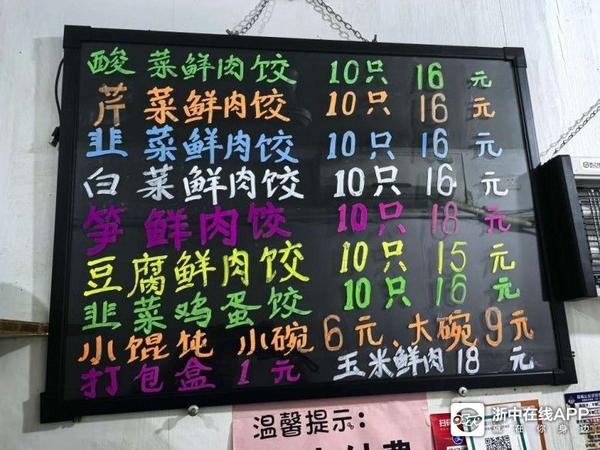 酸菜鲜肉饺 10只 16元
芹菜鲜肉饺 10只 16元
韭菜鲜肉饺 10只 16元
白菜鲜肉饺 10只 16元
笋鲜肉饺 10只 18元
豆腐鲜肉饺 10只 15元
韭菜鸡蛋饺 10只 16元
小馄饨 小碗6元、大碗9元
打包盒 1元 玉米鲜肉18元
温馨提示:
浙中在线APP
就在你身边